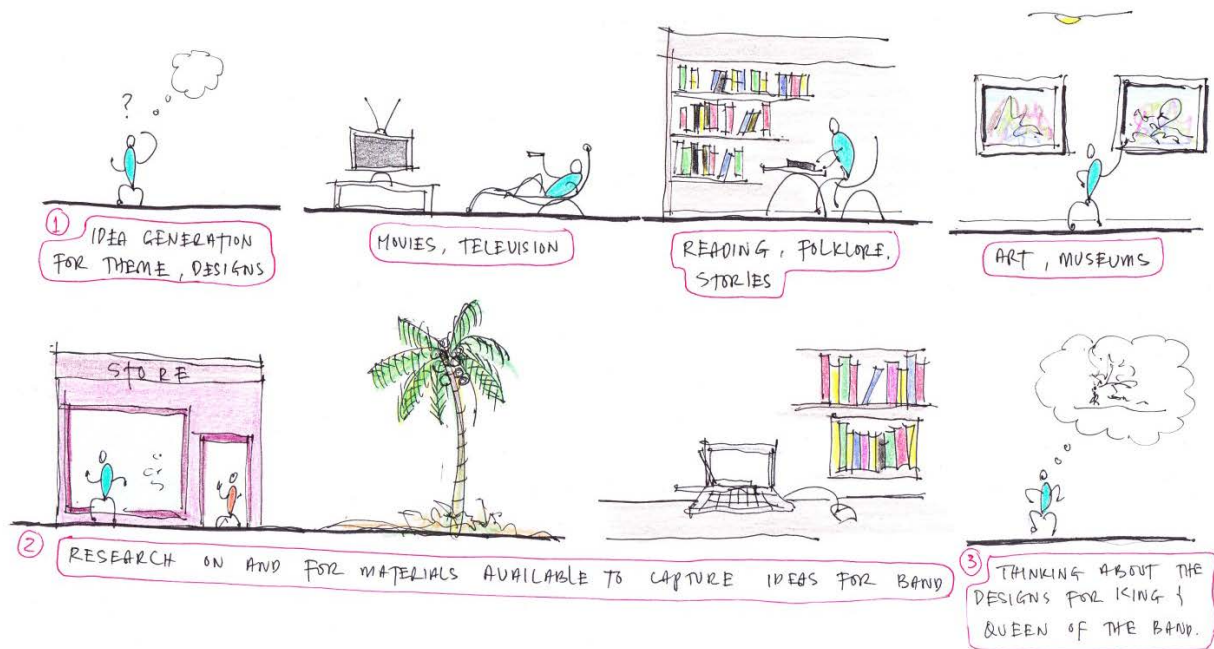 ?
1 IDEA GENERATION
FOR THEME, DESIGNS
MOVIES, TELEVISION
READING, FOLKLORE,
STORIES
ART, MUSEUMS
STORE
2 RESEARCH ON AND FOR MATERIALS AVAILABLE TO CAPTURE IDEAS FOR BAND
3 THINKING ABOUT THE
DESIGNS FOR KING &
QUEEN OF THE BAND.